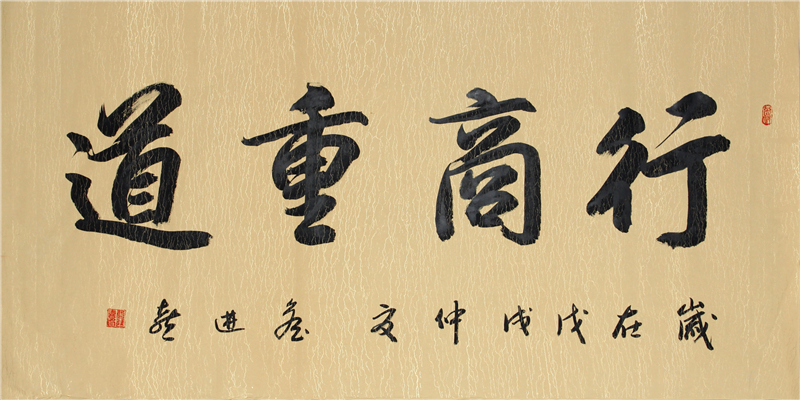 行商重道
歲在戊戌仲夏 進